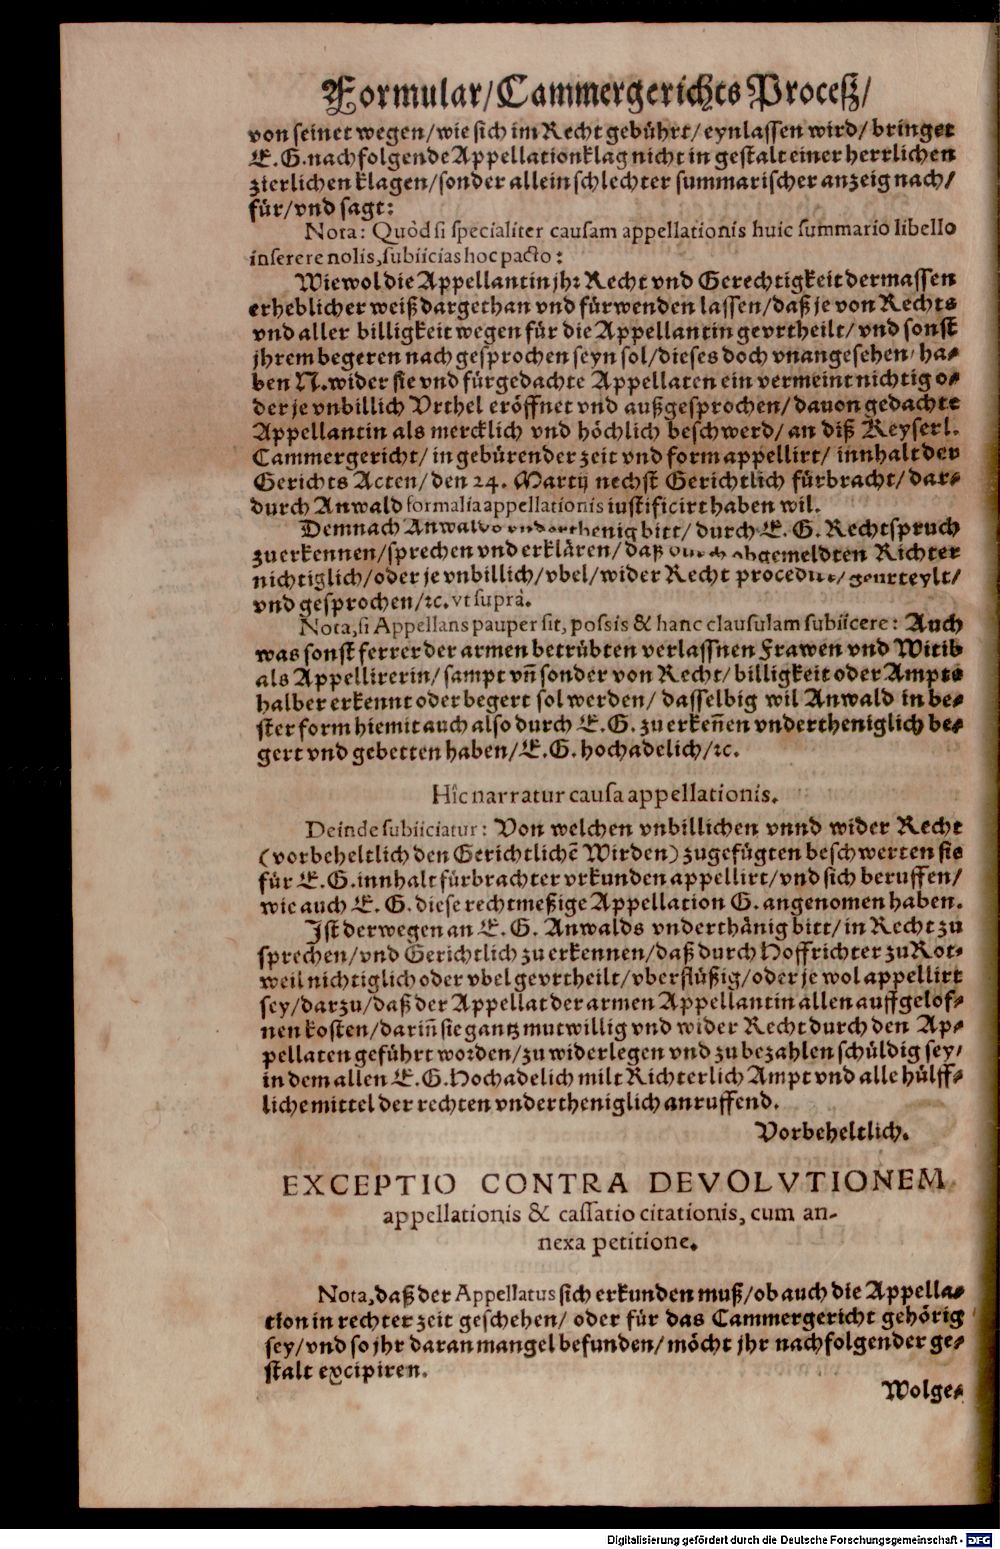 Formular/Cammergerichts Proceß/
von seinet wegen/wie sich im Recht gebührt/eynlassen wird/bringet
E.G.nachfolgende Appellationklag nicht in gestalt einer herrlichen
zierlichen klagen/sonder allein schlechter summarischer anzeig nach/
für/vnd sagt:
Nota: Quòd si specialiter causam appellationis huic summario libello
inserere nolis, subiicias hoc pacto:
Wiewol die Appellantin jhr Recht vnd Gerechtigkeit dermassen
erheblicher weiß dargethan vnd fürwenden lassen/daß je von Rechts
vnd aller billigkeit wegen für die Appellantin gevrtheilt/vnd sonst
jhrem begeren nach gesprochen seyn sol/dieses doch vnangesehen/ha-
ben N.wider sie vnd fürgedachte Appellaten ein vermeint nichtig o-
der je vnbillich Vrthel eröffnet vnd außgesprochen/dauon gedachte
Appellantin als mercklich vnd höchlich beschwerd/an diß Keyserl.
Cammergericht/in gebürender zeit vnd form appellirt/innhalt der
Gerichts Acten/den 24. Martij nechst Gerichtlich fürbracht/dar-
durch Anwald formalia appellationis iustificirt haben wil.
Demnach bitt/durch E.G. Rechtspruch
zuerkennen/sprechen vnd erklären/daß abgemeldten Richter
nichtiglich/oder je vnbillich/vbel/wider Recht geurteylt/
vnd gesprochen/ꝛc. vt suprà.
Nota, si Appellans pauper sit, possis & hanc clausulam subiicere: Auch
was sonst ferrer der armen betrübten verlassnen Frawen vnd Witib
als Appellirerin/sampt vñ sonder von Recht/billigkeit oder Ampts
halber erkennt oder begert sol werden/dasselbig wil Anwald in be-
ster form hiemit auch also durch E.G. zu erkeñen vndertheniglich be-
gert vnd gebetten haben/E.G. hochadelich/ꝛc.
Hîc narratur causa appellationis.
Deinde subiiciatur: Von welchen vnbillichen vnnd wider Recht
(vorbeheltlich den Gerichtlichẽ Wirden) zugefügten beschwerten sie
für E.G.innhalt fürbrachter vrkunden appellirt/vnd sich beruffen/
wie auch E.G. diese rechtmeßige Appellation G. angenomen haben.
Jst derwegen an E.G. Anwalds vnderthänig bitt/in Recht zu
sprechen/vnd Gerichtlich zu erkennen/daß durch Hoffrichter zu Rot-
weil nichtiglich oder vbel gevrtheilt/vberflüßig/oder je wol appellirt
sey/darzu/daß der Appellat der armen Appellantin allen auffgeloff-
nen kosten/dariñ sie gantz mutwillig vnd wider Recht durch den Ap-
pellaten geführt worden/zu widerlegen vnd zu bezahlen schüldig sey/
in dem allen E.G.Hochadelich milt Richterlich Ampt vnd alle hülff-
liche mittel der rechten vndertheniglich anruffend.
Vorbeheltlich.
EXCEPTIO CONTRA DEVOLVTIONEM
appellationis & cassatio citationis, cum an-
nexa petitione.
Nota, daß der Appellatus sich erkunden muß/ob auch die Appella-
tion in rechter zeit geschehen/oder für das Cammergericht gehörig
sey/vnd so jhr daran mangel befunden/möcht jhr nachfolgender ge-
stalt excipiren.
Wolge-
Digitalisierung gefördert durch die Deutsche Forschungsgemeinschaft - DFG